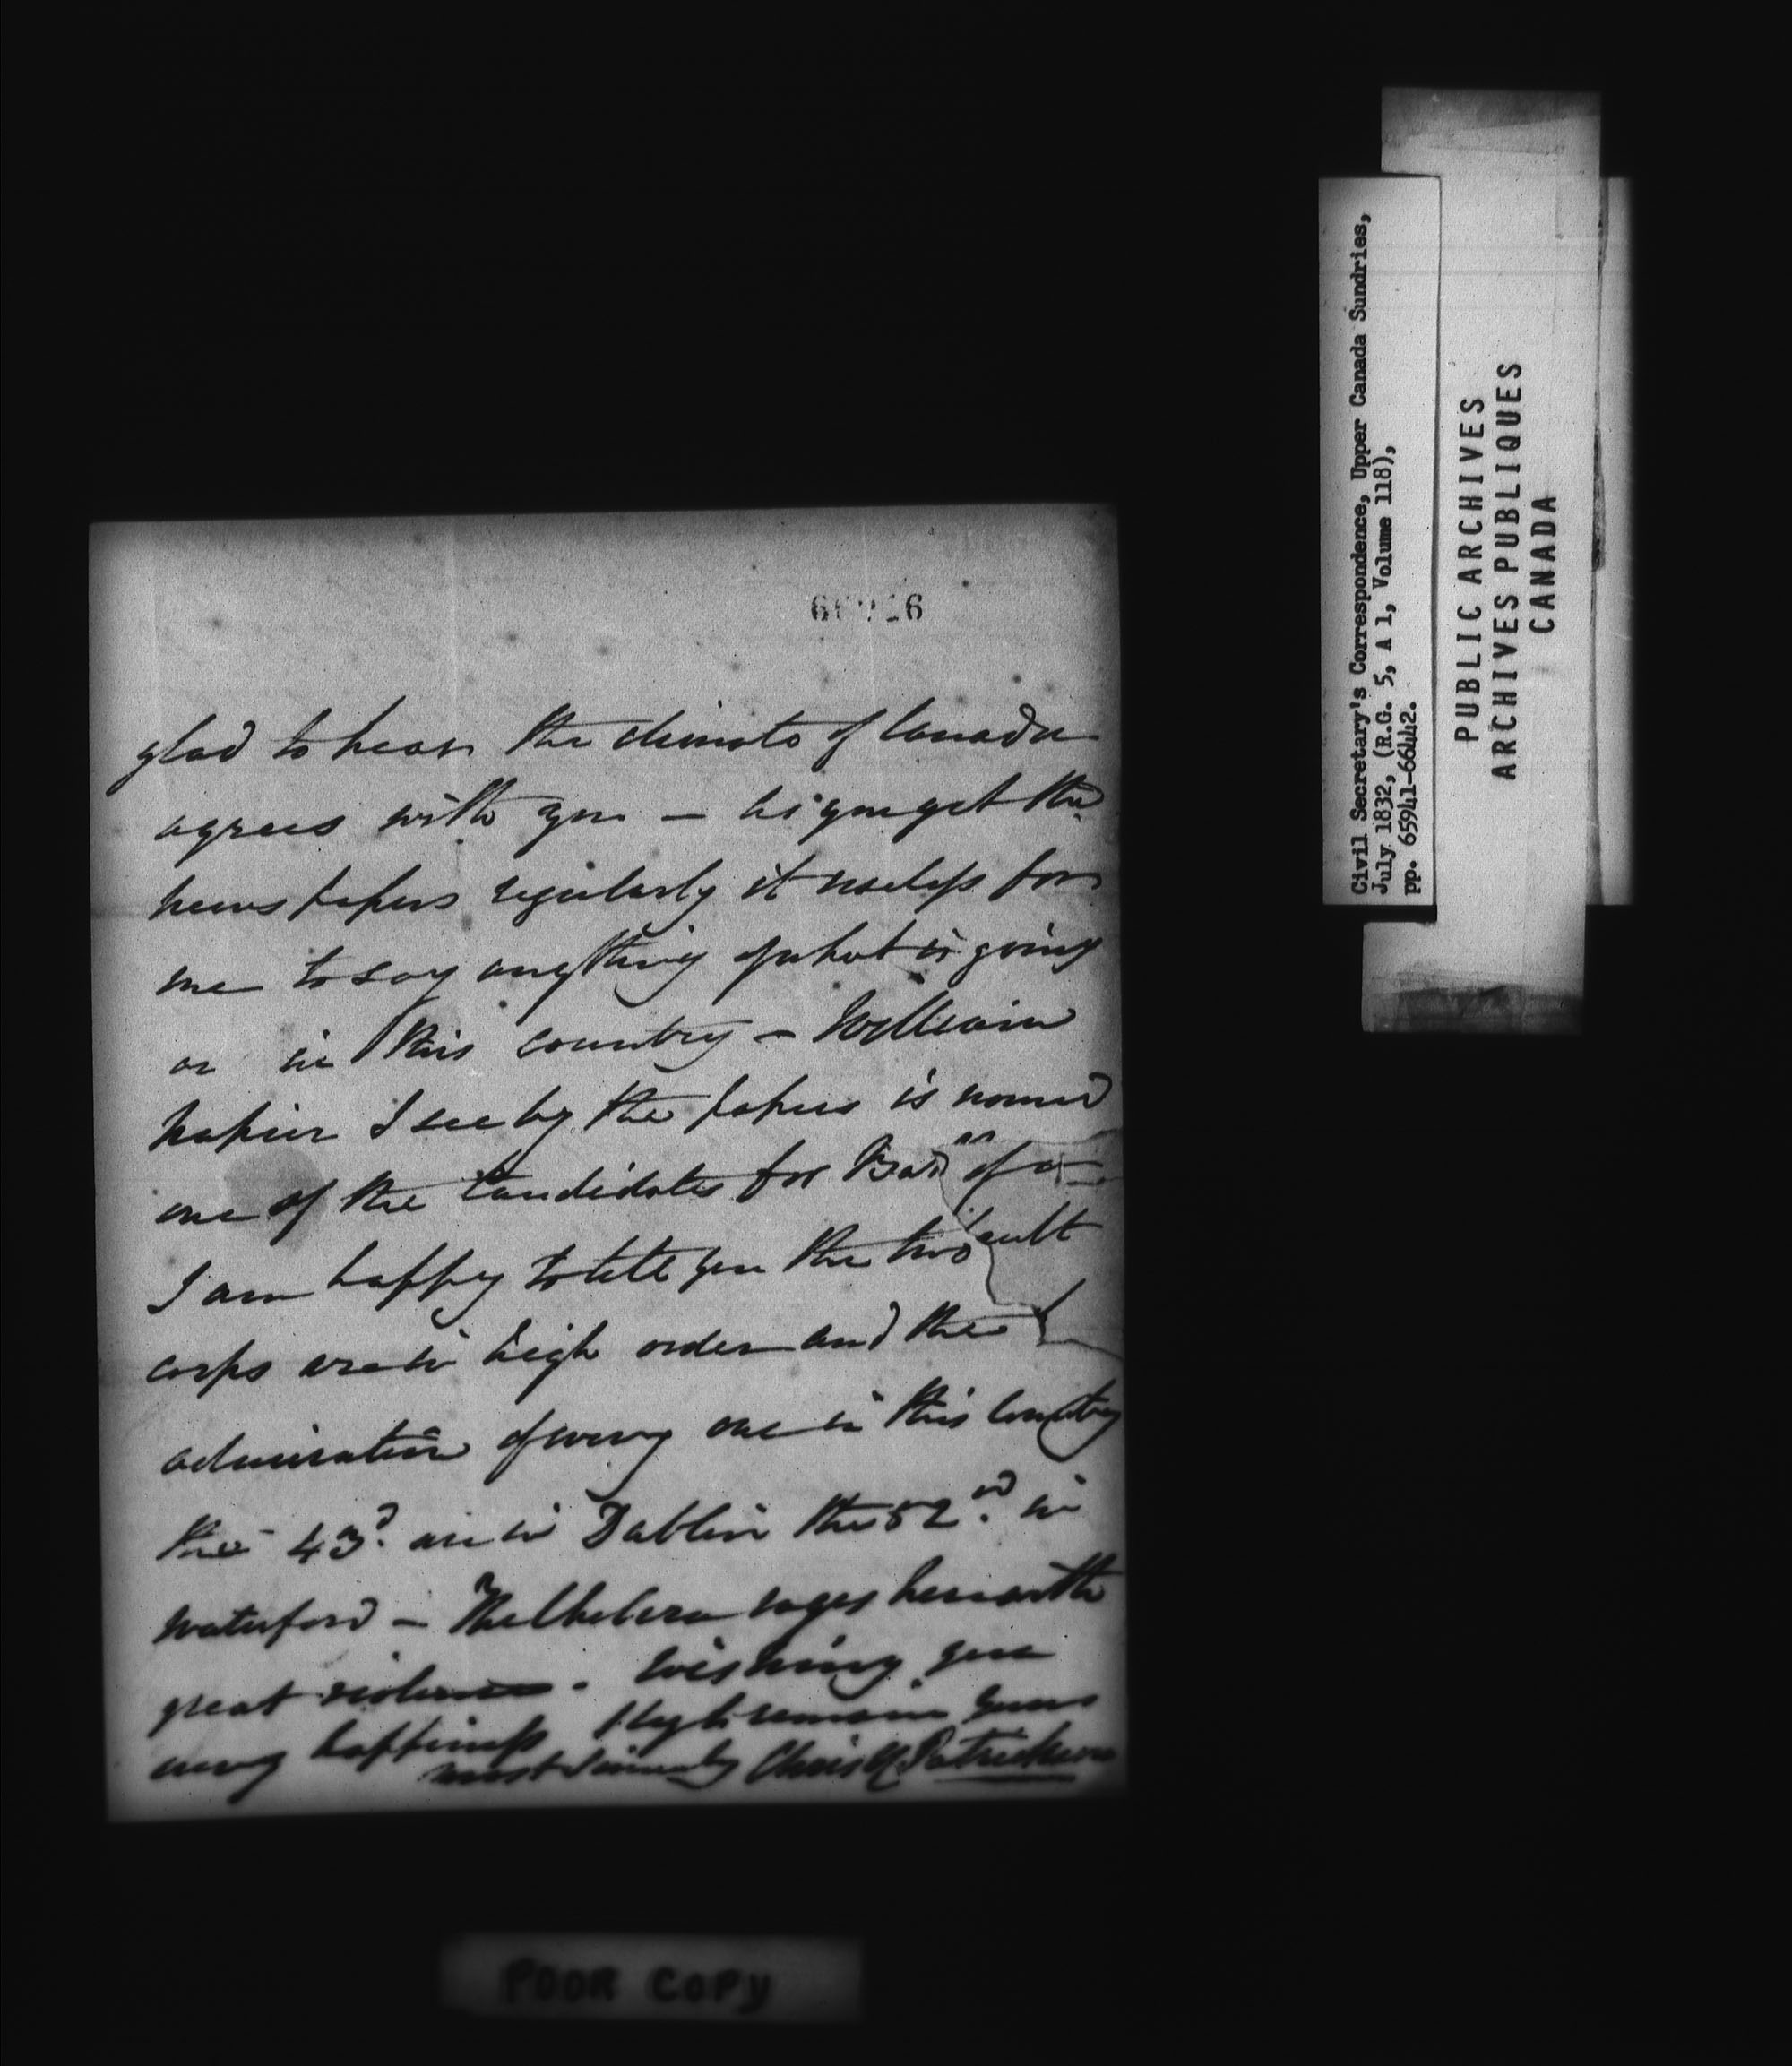 glad to hear the climate of Canada
agrees with you — as you get the
news papers regularly it useless for
me to say anything of what is going
on in this country — William
Napier I see by the papers is named
one of the Candidates for
I am happy to tell you the two
corps are in high order and the
admiration of every one in this Country
the 43d. are in Dublin the 52nd. in
Waterford — The Cholera rages here with
great violence. Wishing you
every happiness remain yours
most sincerely Chris H. Patrickson
Civil Secretary's Correspondence, Upper Canada Sundries,
July 1832, (R.G. 5, A 1, Volume 118),
pp. 65941-66442.
PUBLIC ARCHIVES
ARCHIVES PUBLIQUES
CANADA
POOR COPY